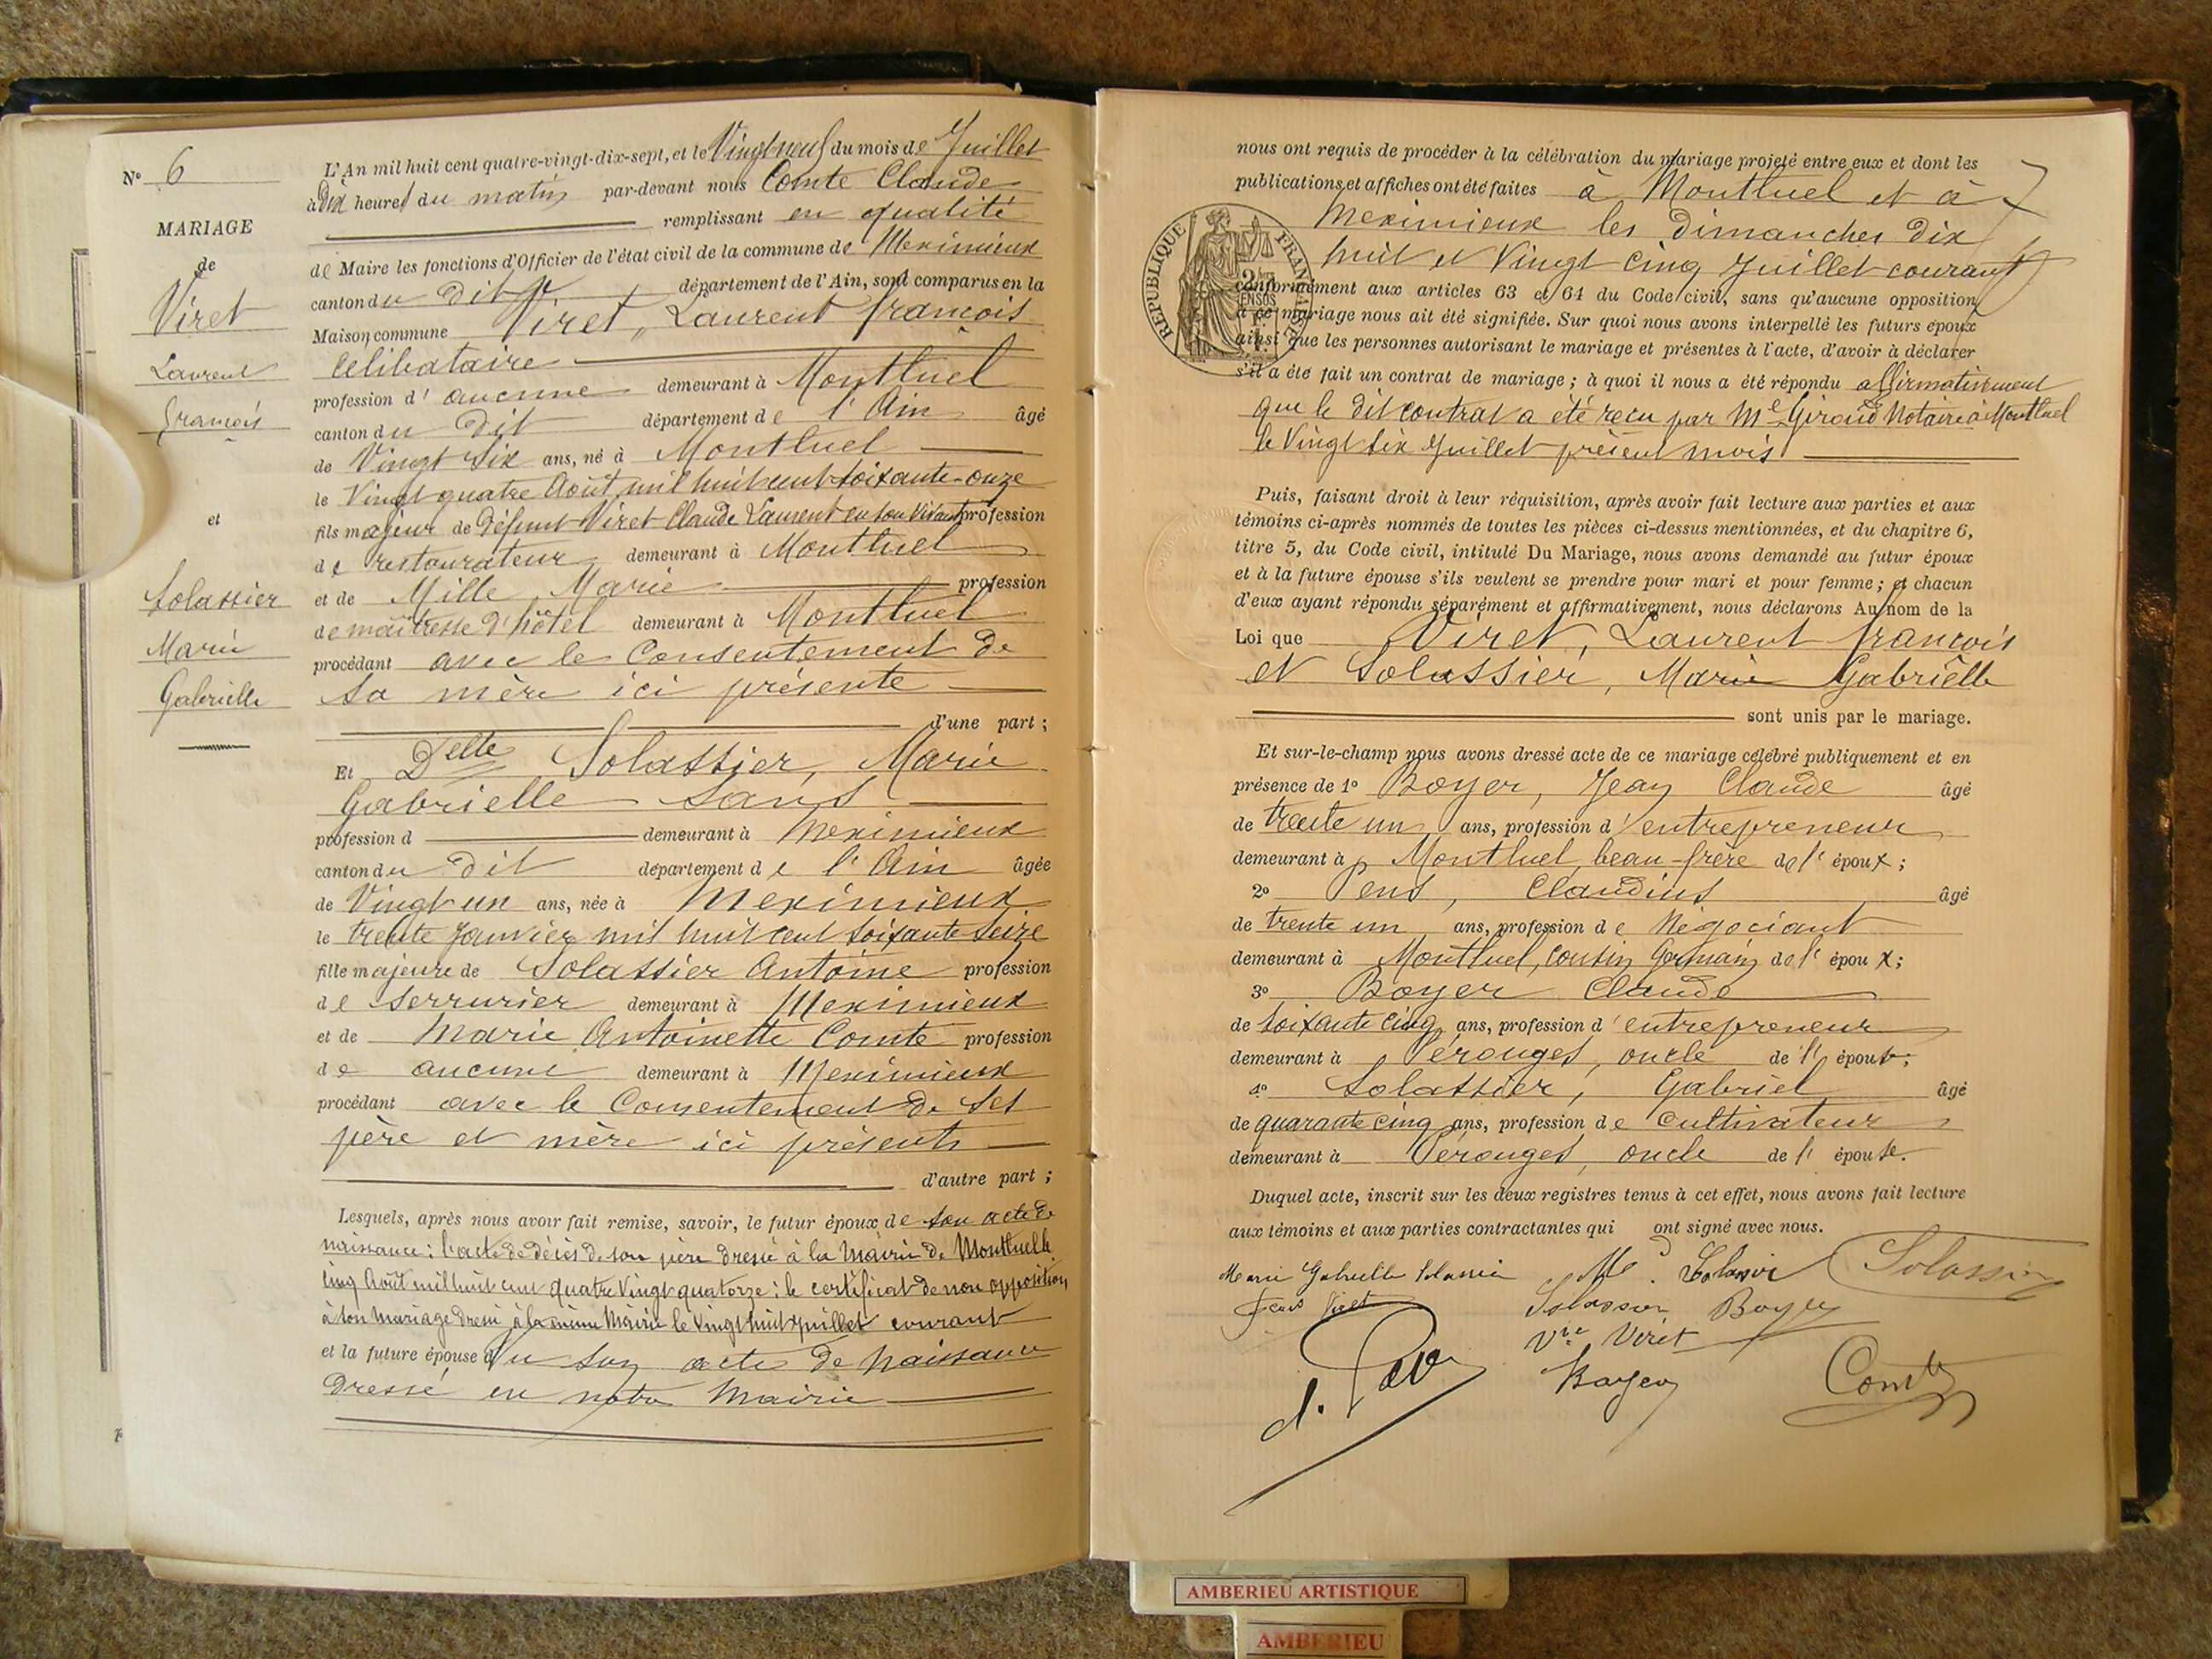 N° 6
MARIAGE
de
Viret
Laurent
François
et
Solassier
Marie
Gabrielle
L'An mil huit cent quatre-vingt-dix-sept, et le Vingt neuf du mois de Juillet
à Dix heures du matin par-devant nous Comte Claude
remplissant en qualité
de Maire les fonctions d'Officier de l'état civil de la commune de Meximieux
canton du dit département de l'Ain, sont comparus en la
Maison commune Viret, Laurent françois
Celibataire
profession d' aucune demeurant à Montluel
canton du Dit département de l'Ain âgé
de Vingt Six ans, né à Montluel
le Vingt quatre Août mil huit cent soixante-onze
fils majeur de Défunt Viret Claude Laurent en son vivant profession
de restaurateur demeurant à Montluel
et de Mille Marie profession
de maîtresse d'hôtel demeurant à Montluel
procédant avec le Consentement de
sa mère ici présente
d'une part ;
Et Delle Solassier, Marie
Gabrielle sans
profession d demeurant à Meximieux
canton du dit département de l'Ain âgée
de Vingt un ans, née à Meximieux
le trente Janvier mil huit cent soixante seize
fille majeure de Solassier Antoine profession
de serrurier demeurant à Meximieux
et de Marie Antoinette Comte profession
de aucune demeurant à Meximieux
procédant avec le Consentement de ses
père et mère ici présents
d'autre part ;
Lesquels, après nous avoir fait remise, savoir, le futur époux de son acte de
naissance : l'acte de décès de son père dressé à la Mairie de Montluel le
cinq Août mil huit cent quatre Vingt quatorze : le certificat de non opposition
à son mariage dressé à la même Mairie le Vingt huit Juillet courant
et la future épouse du son acte de naissance
dressé en notre Mairie
nous ont requis de procéder à la célébration du mariage projeté entre eux et dont les
publications et affiches ont été faites à Montluel et à
Meximieux les dimanches dix
huit et Vingt cinq Juillet courant
conformément aux articles 63 et 64 du Code civil, sans qu'aucune opposition
à ce mariage nous ait été signifiée. Sur quoi nous avons interpellé les futurs époux
ainsi que les personnes autorisant le mariage et présentes à l'acte, d'avoir à déclarer
s'il a été fait un contrat de mariage ; à quoi il nous a été répondu affirmativement
que le dit contrat a été reçu par Me Giraud Notaire à Montluel
le Vingt six Juillet présent mois
RÉPUBLIQUE FRANÇAISE
Puis, faisant droit à leur réquisition, après avoir fait lecture aux parties et aux
témoins ci-après nommés de toutes les pièces ci-dessus mentionnées, et du chapitre 6,
titre 5, du Code civil, intitulé Du Mariage, nous avons demandé au futur époux
et à la future épouse s'ils veulent se prendre pour mari et pour femme ; et chacun
d'eux ayant répondu séparément et affirmativement, nous déclarons Au nom de la
Loi que Viret, Laurent françois
et Solassier, Marie Gabrielle
sont unis par le mariage.
Et sur-le-champ nous avons dressé acte de ce mariage célébré publiquement et en
présence de 1° Boyer, Jean Claude âgé
de trente un ans, profession d'entrepreneur
demeurant à Montluel, beau-frère de l'époux ;
2° Pens, Claudius âgé
de trente un ans, profession de Négociant
demeurant à Montluel, cousin Germain de l'époux ;
3° Boyer Claude
de soixante cinq ans, profession d'entrepreneur
demeurant à Pérouges, oncle de l'époux ;
4° Solassier, Gabriel âgé
de quarante cinq ans, profession de cultivateur
demeurant à Pérouges, oncle de l'épouse.
Duquel acte, inscrit sur les deux registres tenus à cet effet, nous avons fait lecture
aux témoins et aux parties contractantes qui ont signé avec nous.
Marie Gabrielle Solassier Solassier
Viret Solassier Boyer
Vve Viret
Boyer Comte
AMBERIEU ARTISTIQUE
AMBERIEU